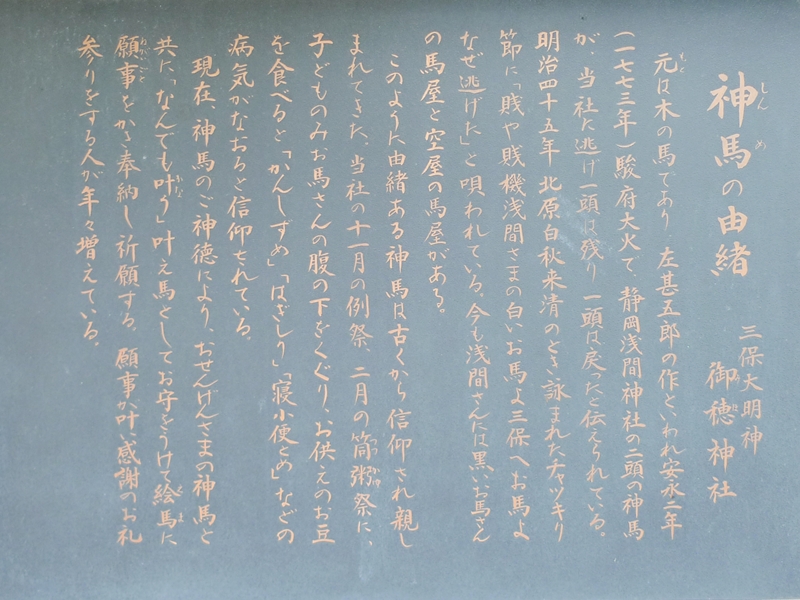 神馬の由緒
三保大明神
御穂神社
元は木の馬であり、左甚五郎の作といわれ安永二年
(一七七三年)駿府大火で、静岡浅間神社の二頭の神馬
が、当社に逃げ一頭は残り、一頭は戻ったと伝えられている。
明治四十五年 北原白秋来清のとき詠まれたチャッキリ
節に「賎や賎機浅間さまの白いお馬よ三保へお馬よ
なぜ逃げた」と唄われている。今も浅間さんには黒いお馬さん
の馬屋と空屋の馬屋がある。
このように由緒ある神馬は古くから信仰され親し
まれてきた。当社の十一月の例祭、二月の筒粥祭に、
子どものみお馬さんの腹の下をくぐり、お供えのお豆
を食べると「かんしずめ」「はぎしり」「寝小便とめ」などの
病気がなおると信仰されている。
現在、神馬のご神徳により、おせんげんさまの神馬と
共に、「なんでも叶う」叶え馬としてお守をうけて絵馬に
願事をかき奉納し祈願する。願事が叶い感謝のお礼
参りをする人が年々増えている。